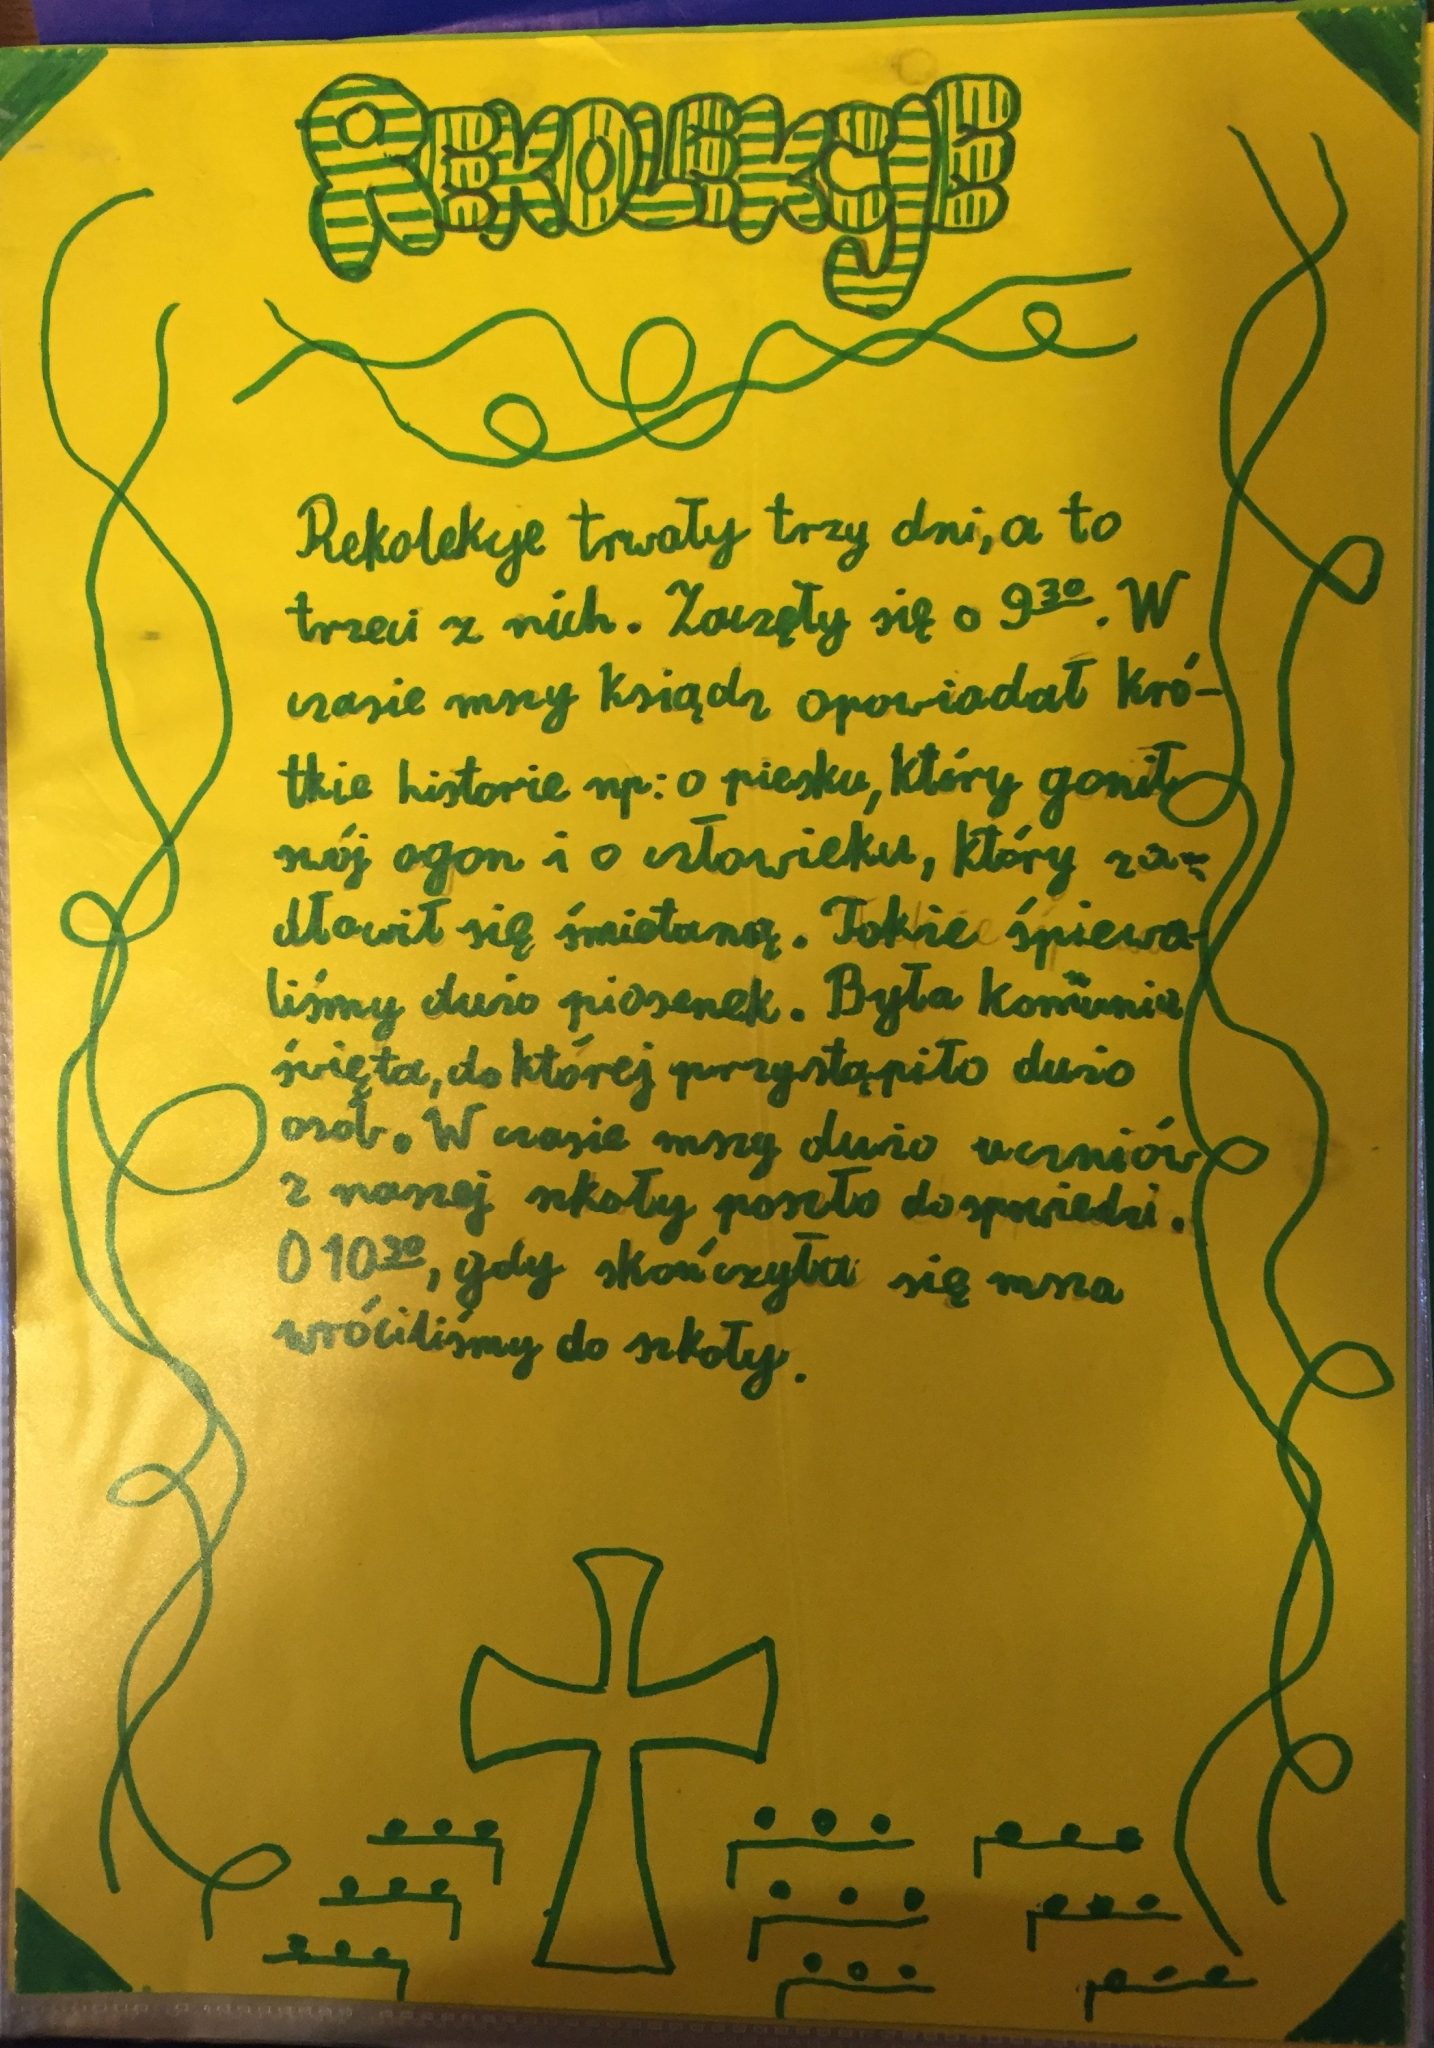 REKOLEKCJE
Rekolekcje trwały trzy dni, a to
trzeci z nich. Zaczęły się o 9³⁰. W
czasie mszy ksiądz opowiadał kró-
tkie historie np: o piesku, który gonił
swój ogon i o człowieku, który za-
dławił się śmietaną. Także śpiewa-
liśmy dużo piosenek. Była komunia
święta, do której przystąpiło dużo
osób. W czasie mszy dużo uczniów
z naszej szkoły poszło do spowiedzi.
O 10³⁰, gdy skończyła się msza
wróciliśmy do szkoły.